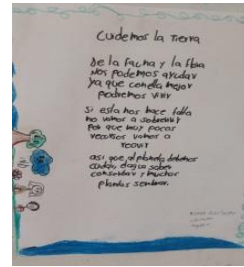 Cuidemos la Tierra
De la fauna y la flora
Nos podemos ayudar
ya que con ella mejor
podremos vivir
Si esta nos hace falta
no vamos a sobrevivir
Por que muy pocos
recursos vamos a
reovir
asi que al planeta debemos
saber
consolidar y muchas
plantas sembrar.